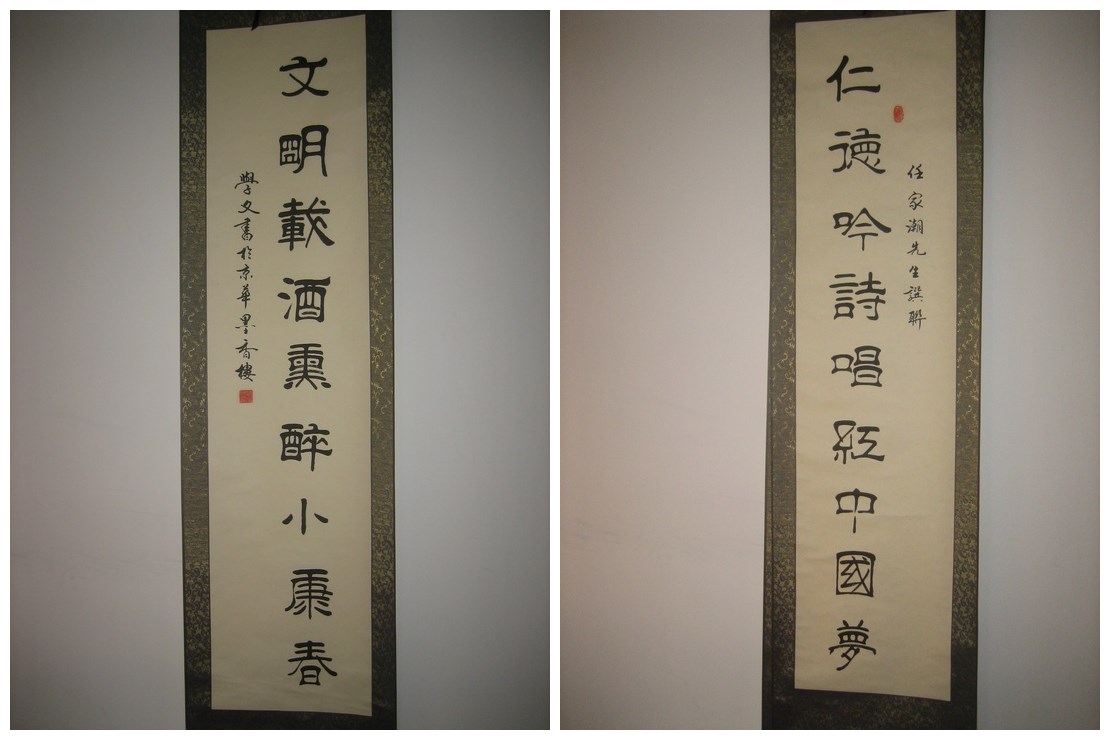 任家潮先生撰聯
仁德吟詩唱紅中國夢
文明載酒熏醉小康春
學文書於京華墨香樓